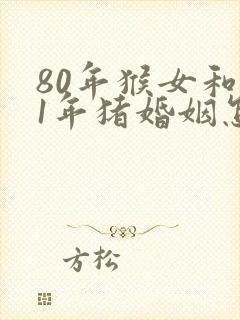 80年猴女和
1年猪婚姻怎
方松